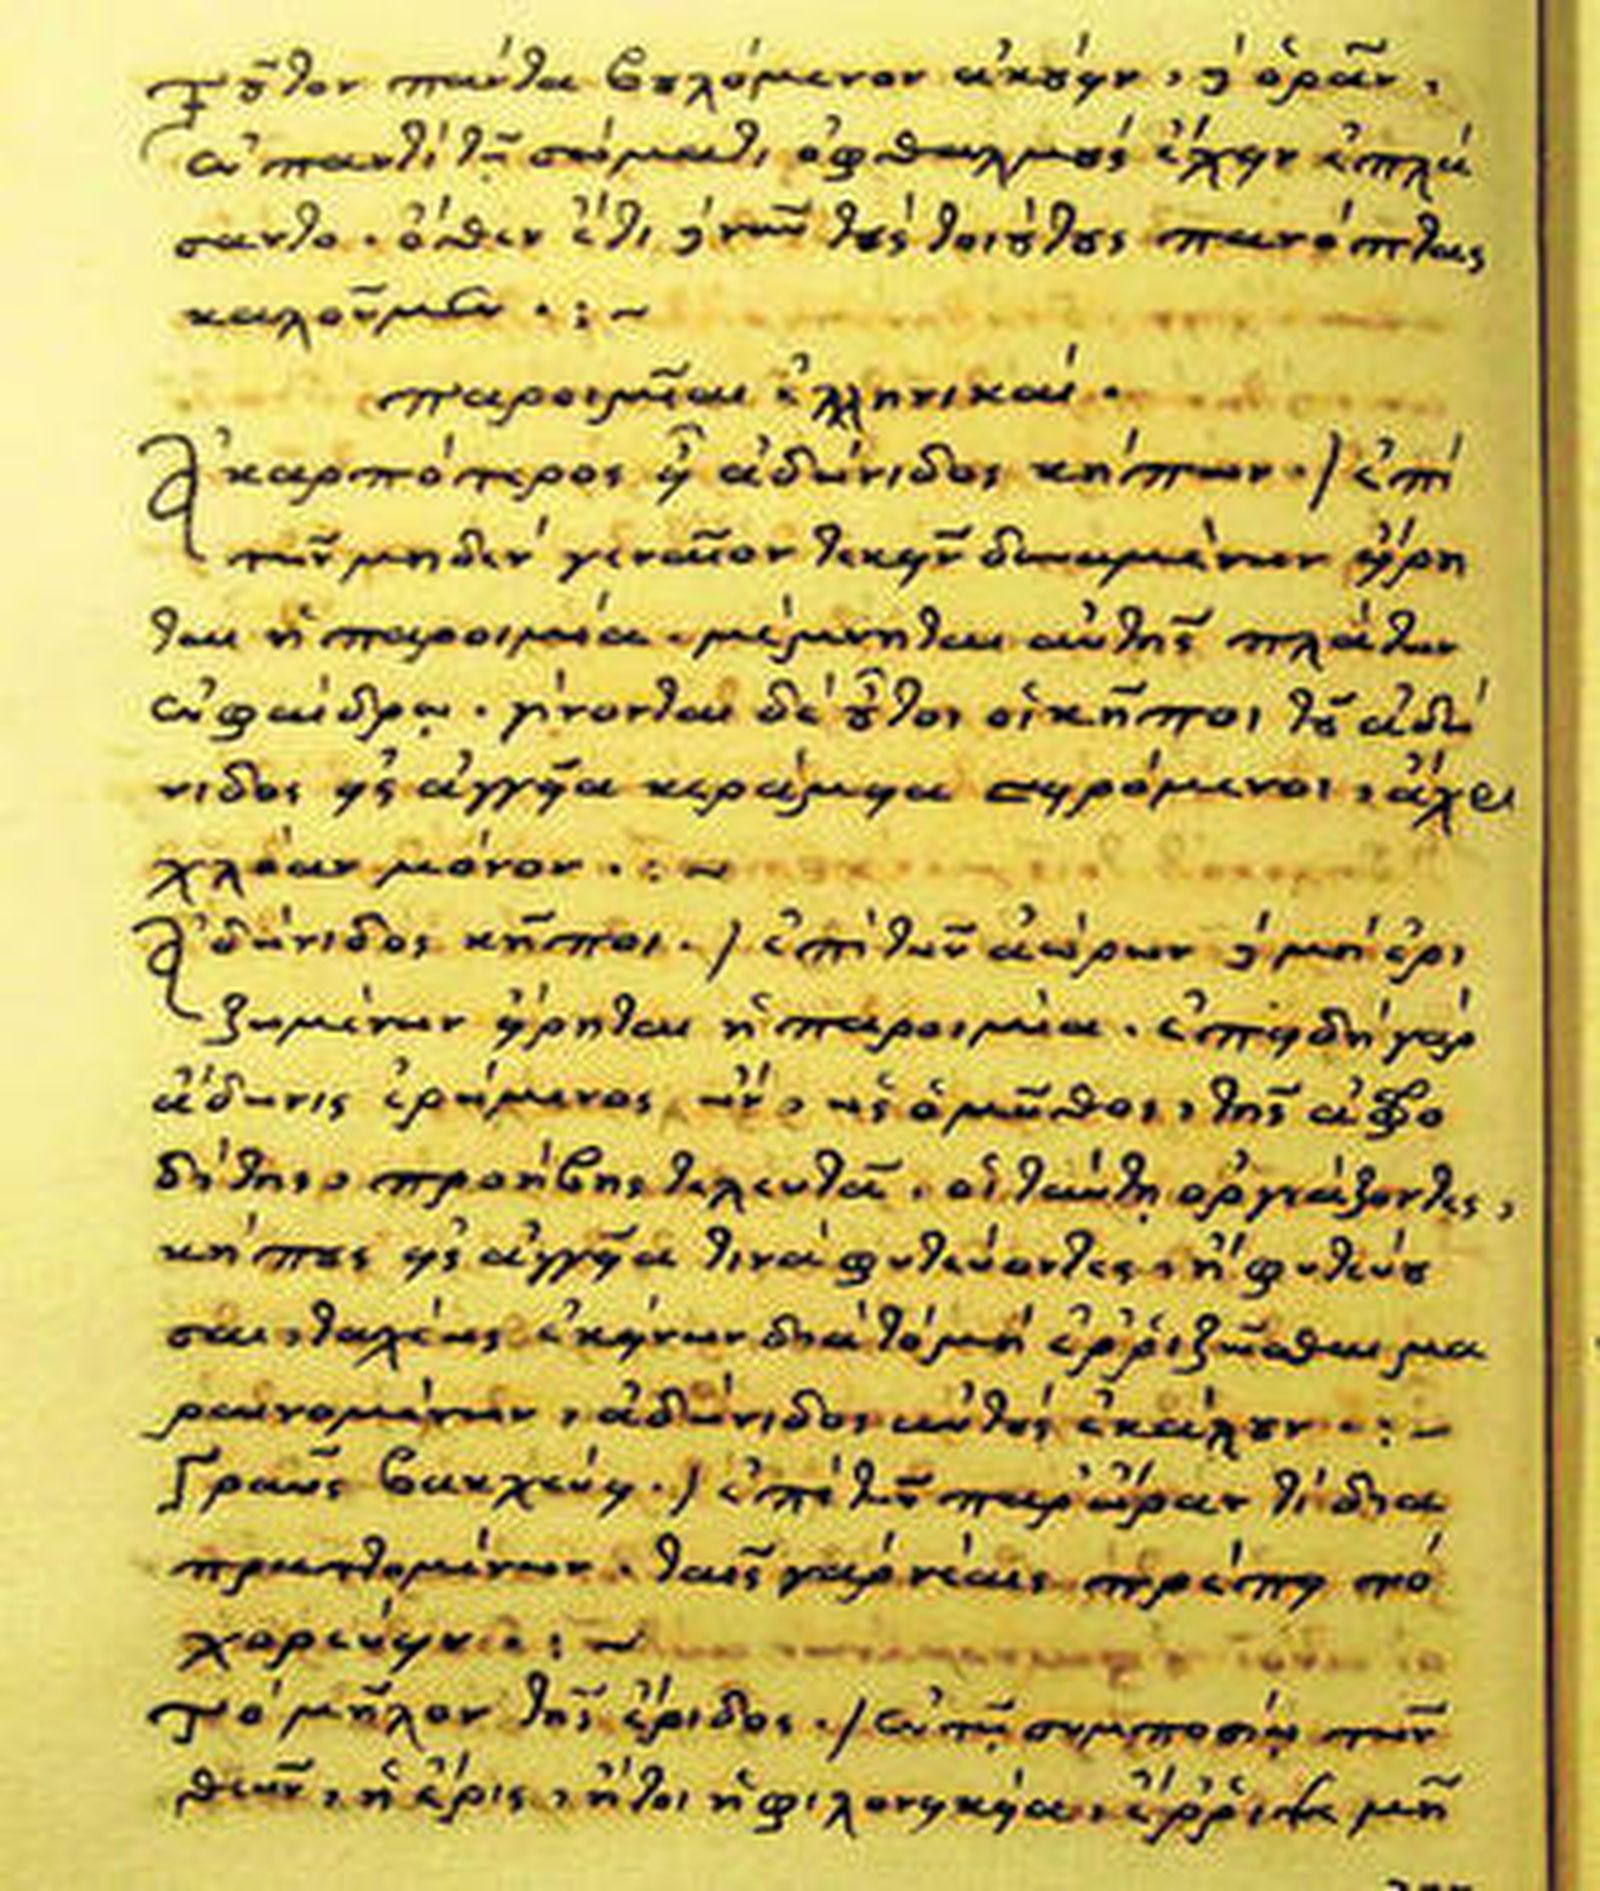 τοῦτον πάντα βουλόμενον ἀκούειν, καὶ ὁρᾶν,
ἐν παντὶ τῷ σώματι ὀφθαλμοὺς ἔχειν ἐπλά
σαντο. ὅθεν ἔτι καὶ νῦν τοὺς τοιούτους πανόπτας
καλοῦμεν . : ~
παροιμῖαι ἑλληνικαί .
Ἀκαρπότερος εἶ ἀδώνιδος κήπων . / ἐπὶ
τῶν μηδὲν γενναῖον τεκεῖν δυναμένων εἴρη
ται ἡ παροιμία. μέμνηται αὐτῆς πλάτων
ἐν φαίδρῳ. γίνονται δὲ οὗτοι οἱ κῆποι τοῦ ἀδώ
νιδος εἰς ἀγγεῖα κεράμεια σπειρόμενοι, ἄχρι
χλόαν μόνον . : ~
Ἀδώνιδος κῆποι . / ἐπὶ τῶν ἀώρων καὶ μὴ ἐρι
ζωμένων εἴρηται ἡ παροιμία. ἐπειδὴ γὰρ
ἄδωνις ἐρώμενος ὢν, ὡς ὁ μῦθος, τῆς ἀφρο
δίτης, προήβης τελευτᾶ. οἱ ταύτῃ ὀργιάζοντες,
κήπους εἰς ἀγγεῖα τινὰ φυτεύοντες, ἢ φυτεύου
σαι, ταχέως ἐκείνων διὰ τὸ μὴ ἐρῥιζῶσθαι μα
ραινομένων, ἀδώνιδος αὐτοὺς ἐκάλουν . : ~
Γραῦς βακχεύει . / ἐπὶ τῶν παρ' ὥραν τὶ δια
πραττομένων. ταῖς γὰρ νέαις πρέπει τὸ
χορεύειν . : ~
Τὸ μῆλον τῆς ἔριδος . / ἐν τῷ συμποσίῳ τῶν
θεῶν, ἡ ἔρις, ἤτοι ἡ φιλονεικεία, ἔρῥιψε μῆ